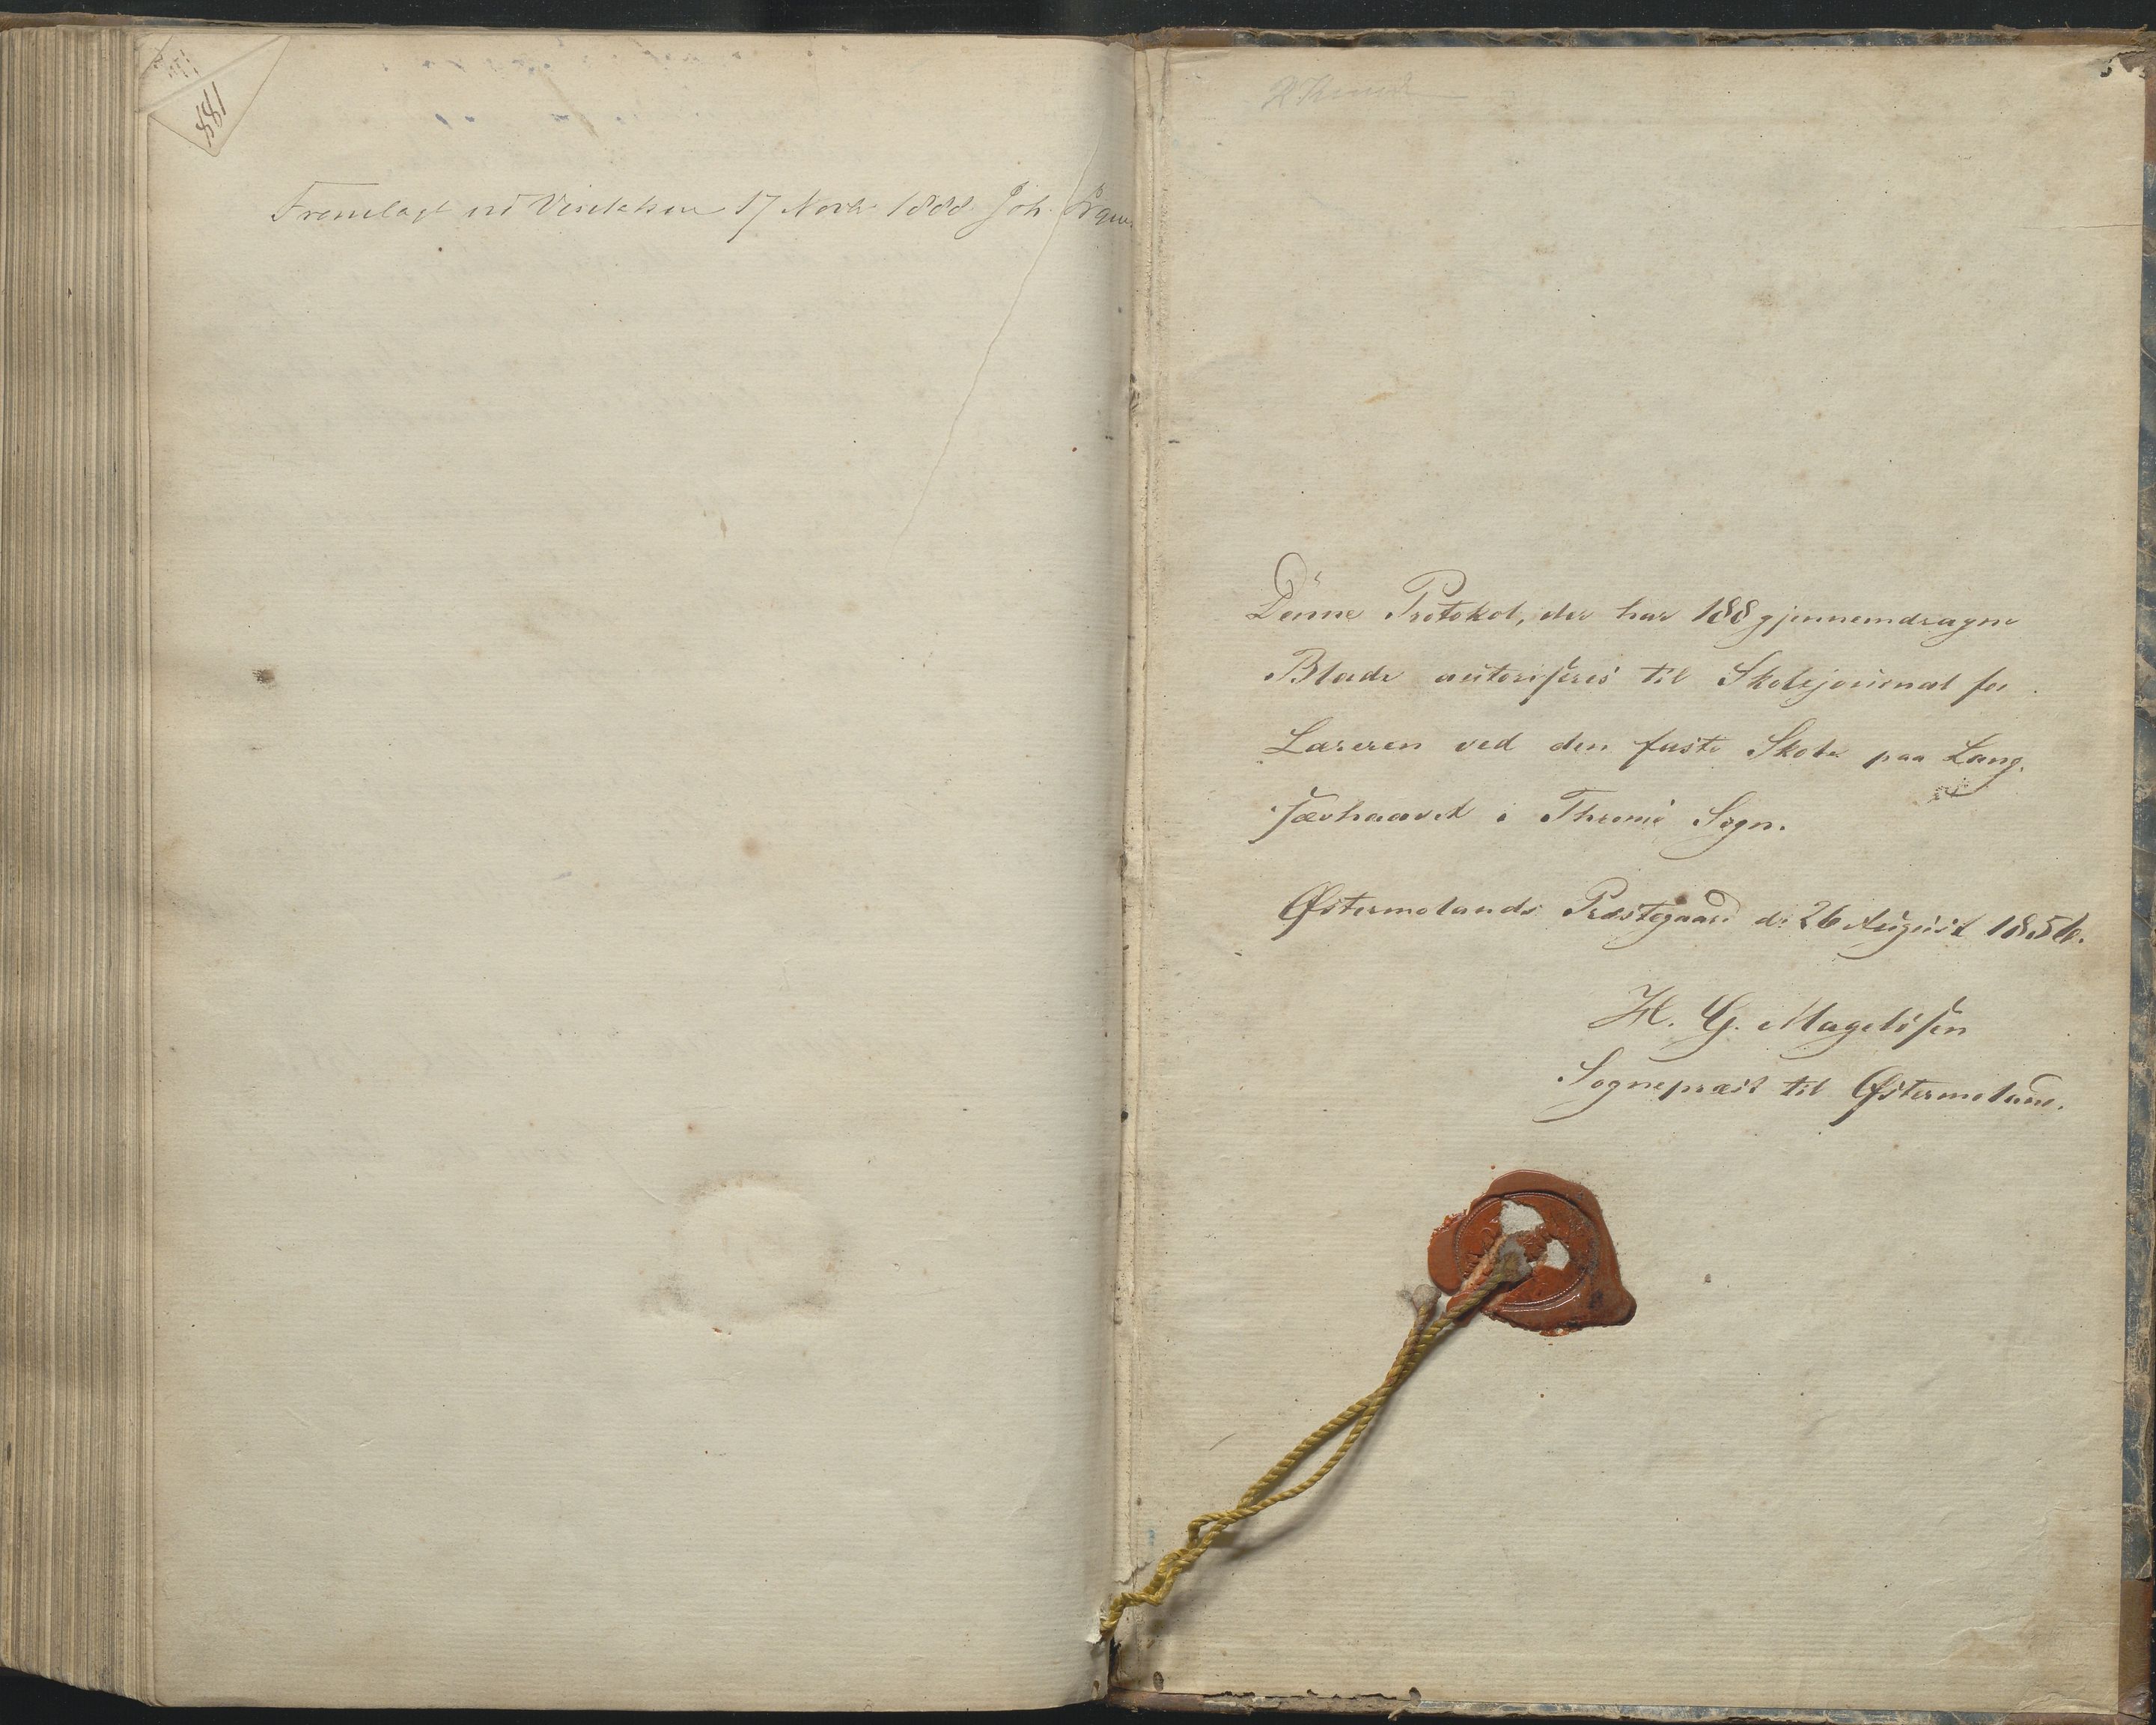 188
Fremlagt ved Visitatsen 17 Novbr 1888 Joh.
Denne Protokol, der har 188 gjennemdragne
Blade autoriseres til Skolejournal for
Læreren ved den faste Skole paa Lang-
sævhaavet i Thromø Sogn.
Østermolands Præstegaard d: 26 August 1856.
H. G. Magelssen
Sognepræst til Østermoland.